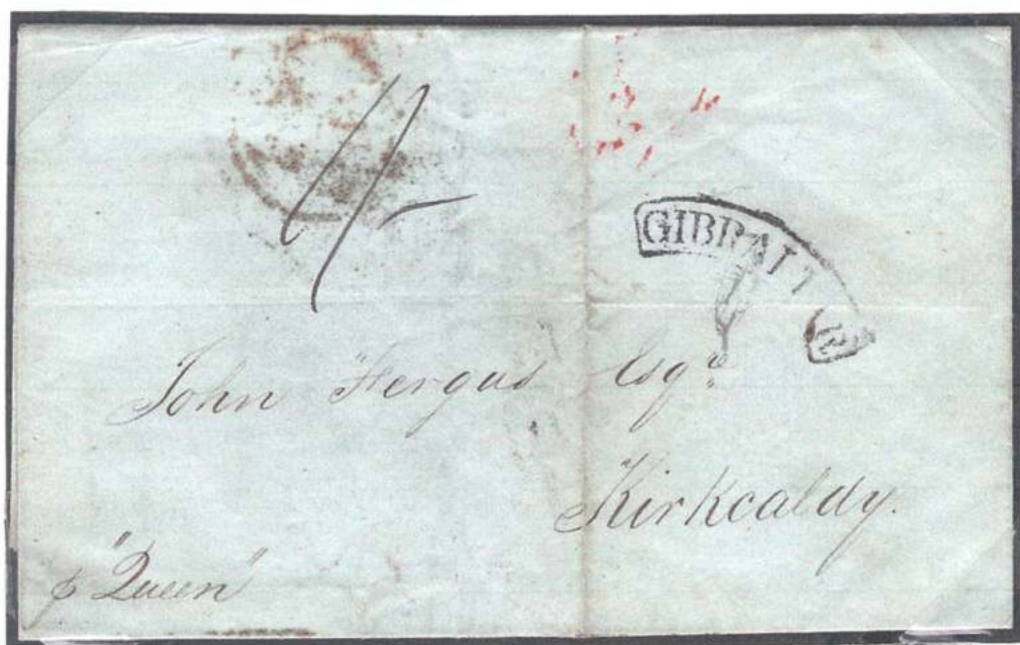 1/-
GIBRALTAR
John Fergus Esqre
Kirkcaldy.
p "Queen"